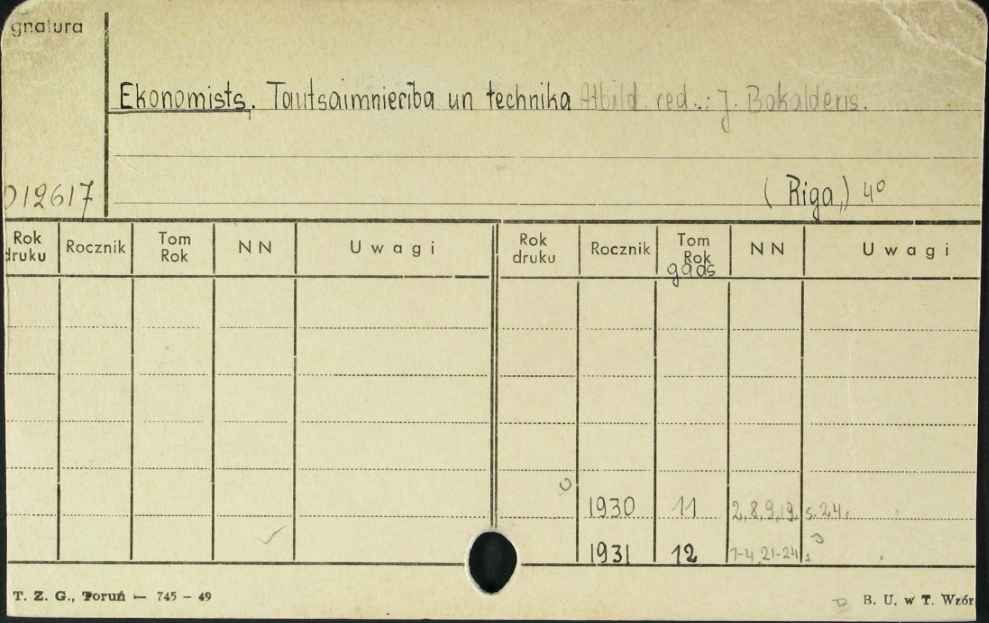 gnatura
Ekonomists. Tautsaimniecība un technika Atbild. red.: J. Bokalders.
012617
(Riga,) 4°
Rok druku Rocznik Tom Rok NN Uwagi Rok druku Rocznik Tom Rok gads NN Uwagi
1930 11 2,8,9,19 s.24.
1931 12 1-4, 21-24
T. Z. G., Toruń — 745 - 49
B. U. w T. Wzór